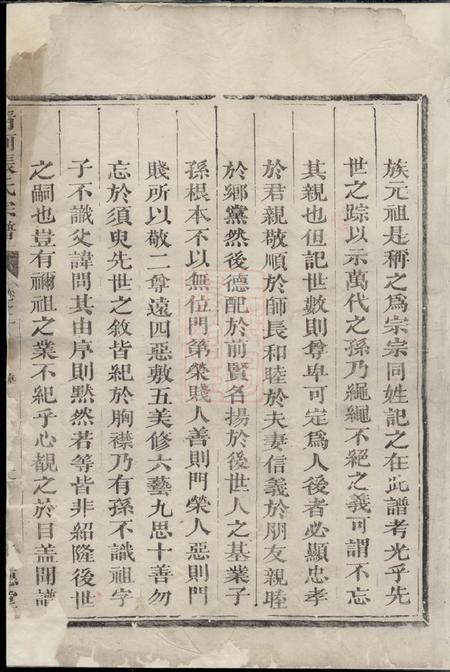 族元祖是稱之爲宗宗同姓記之在此譜考光乎先
世之踪以示萬代之孫乃繩繩不絕之義可謂不忘
其親也但記世數則尊卑可定爲人後者必顯忠孝
於君親敬順於師長和睦於夫妻信義於朋友親睦
於鄉黨然後德配於前賢名揚於後世人之基業子
孫根本不以無位門第榮賤人善則門榮人惡則門
賤所以敬二尊遠四惡敷五美修六藝九思十善勿
忘於須臾先世之敘皆紀於胸襟乃有孫不識祖字
子不識父諱問其由序則默然若等皆非紹隆後世
之嗣也豈有禰祖之業不紀乎心覩之於目盖聞譜
清河張氏宗譜